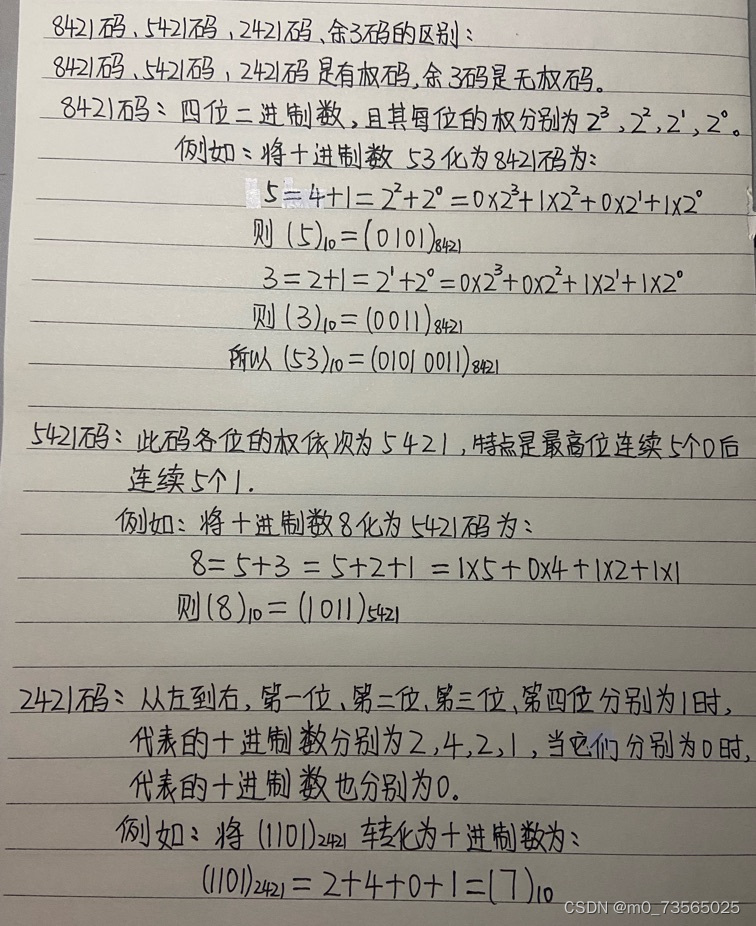 8421码、5421码,2421码、余3码的区别:
8421码、5421码,2421码是有权码,余3码是无权码。
8421码:四位二进制数,且其每位的权分别为2³,2²,2¹,2⁰。
例如:将十进制数 53化为8421码为:
5=4+1=2²+2⁰=0×2³+1×2²+0×2¹+1×2⁰
则 (5)₁₀=(0101)₈₄₂₁
3=2+1=2¹+2⁰=0×2³+0×2²+1×2¹+1×2⁰
则 (3)₁₀=(0011)₈₄₂₁
所以 (53)₁₀=(0101 0011)₈₄₂₁
5421码:此码各位的权依次为5421,特点是最高位连续5个0后
连续5个1.
例如:将十进制数8化为5421码为:
8=5+3=5+2+1=1×5+0×4+1×2+1×1
则(8)₁₀=(1011)₅₄₂₁
2421码:从左到右,第一位、第二位、第三位、第四位分别为1时,
代表的十进制数分别为2,4,2,1,当它们分别为0时,
代表的十进制数也分别为0。
例如:将 (1101)₂₄₂₁ 转化为十进制数为:
(1101)₂₄₂₁=2+4+0+1=(7)₁₀
CSDN @m0_73565025